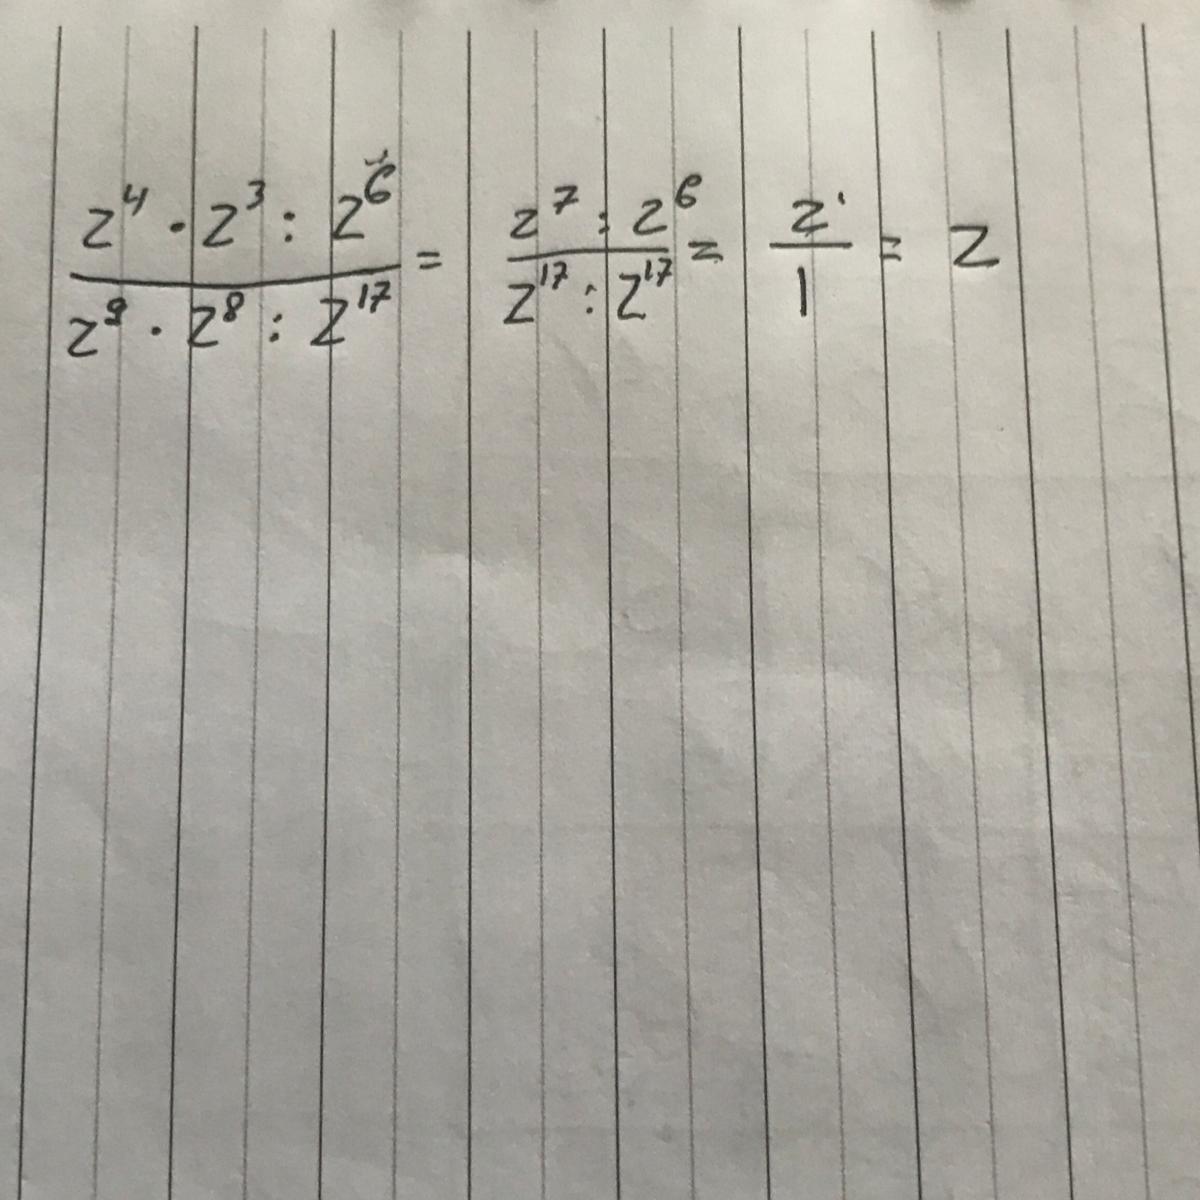 z⁴ · z³ : z⁶ / z⁹ · z⁸ : z¹⁷ = z⁷ : z⁶ / z¹⁷ : z¹⁷ = z¹ / 1 = z